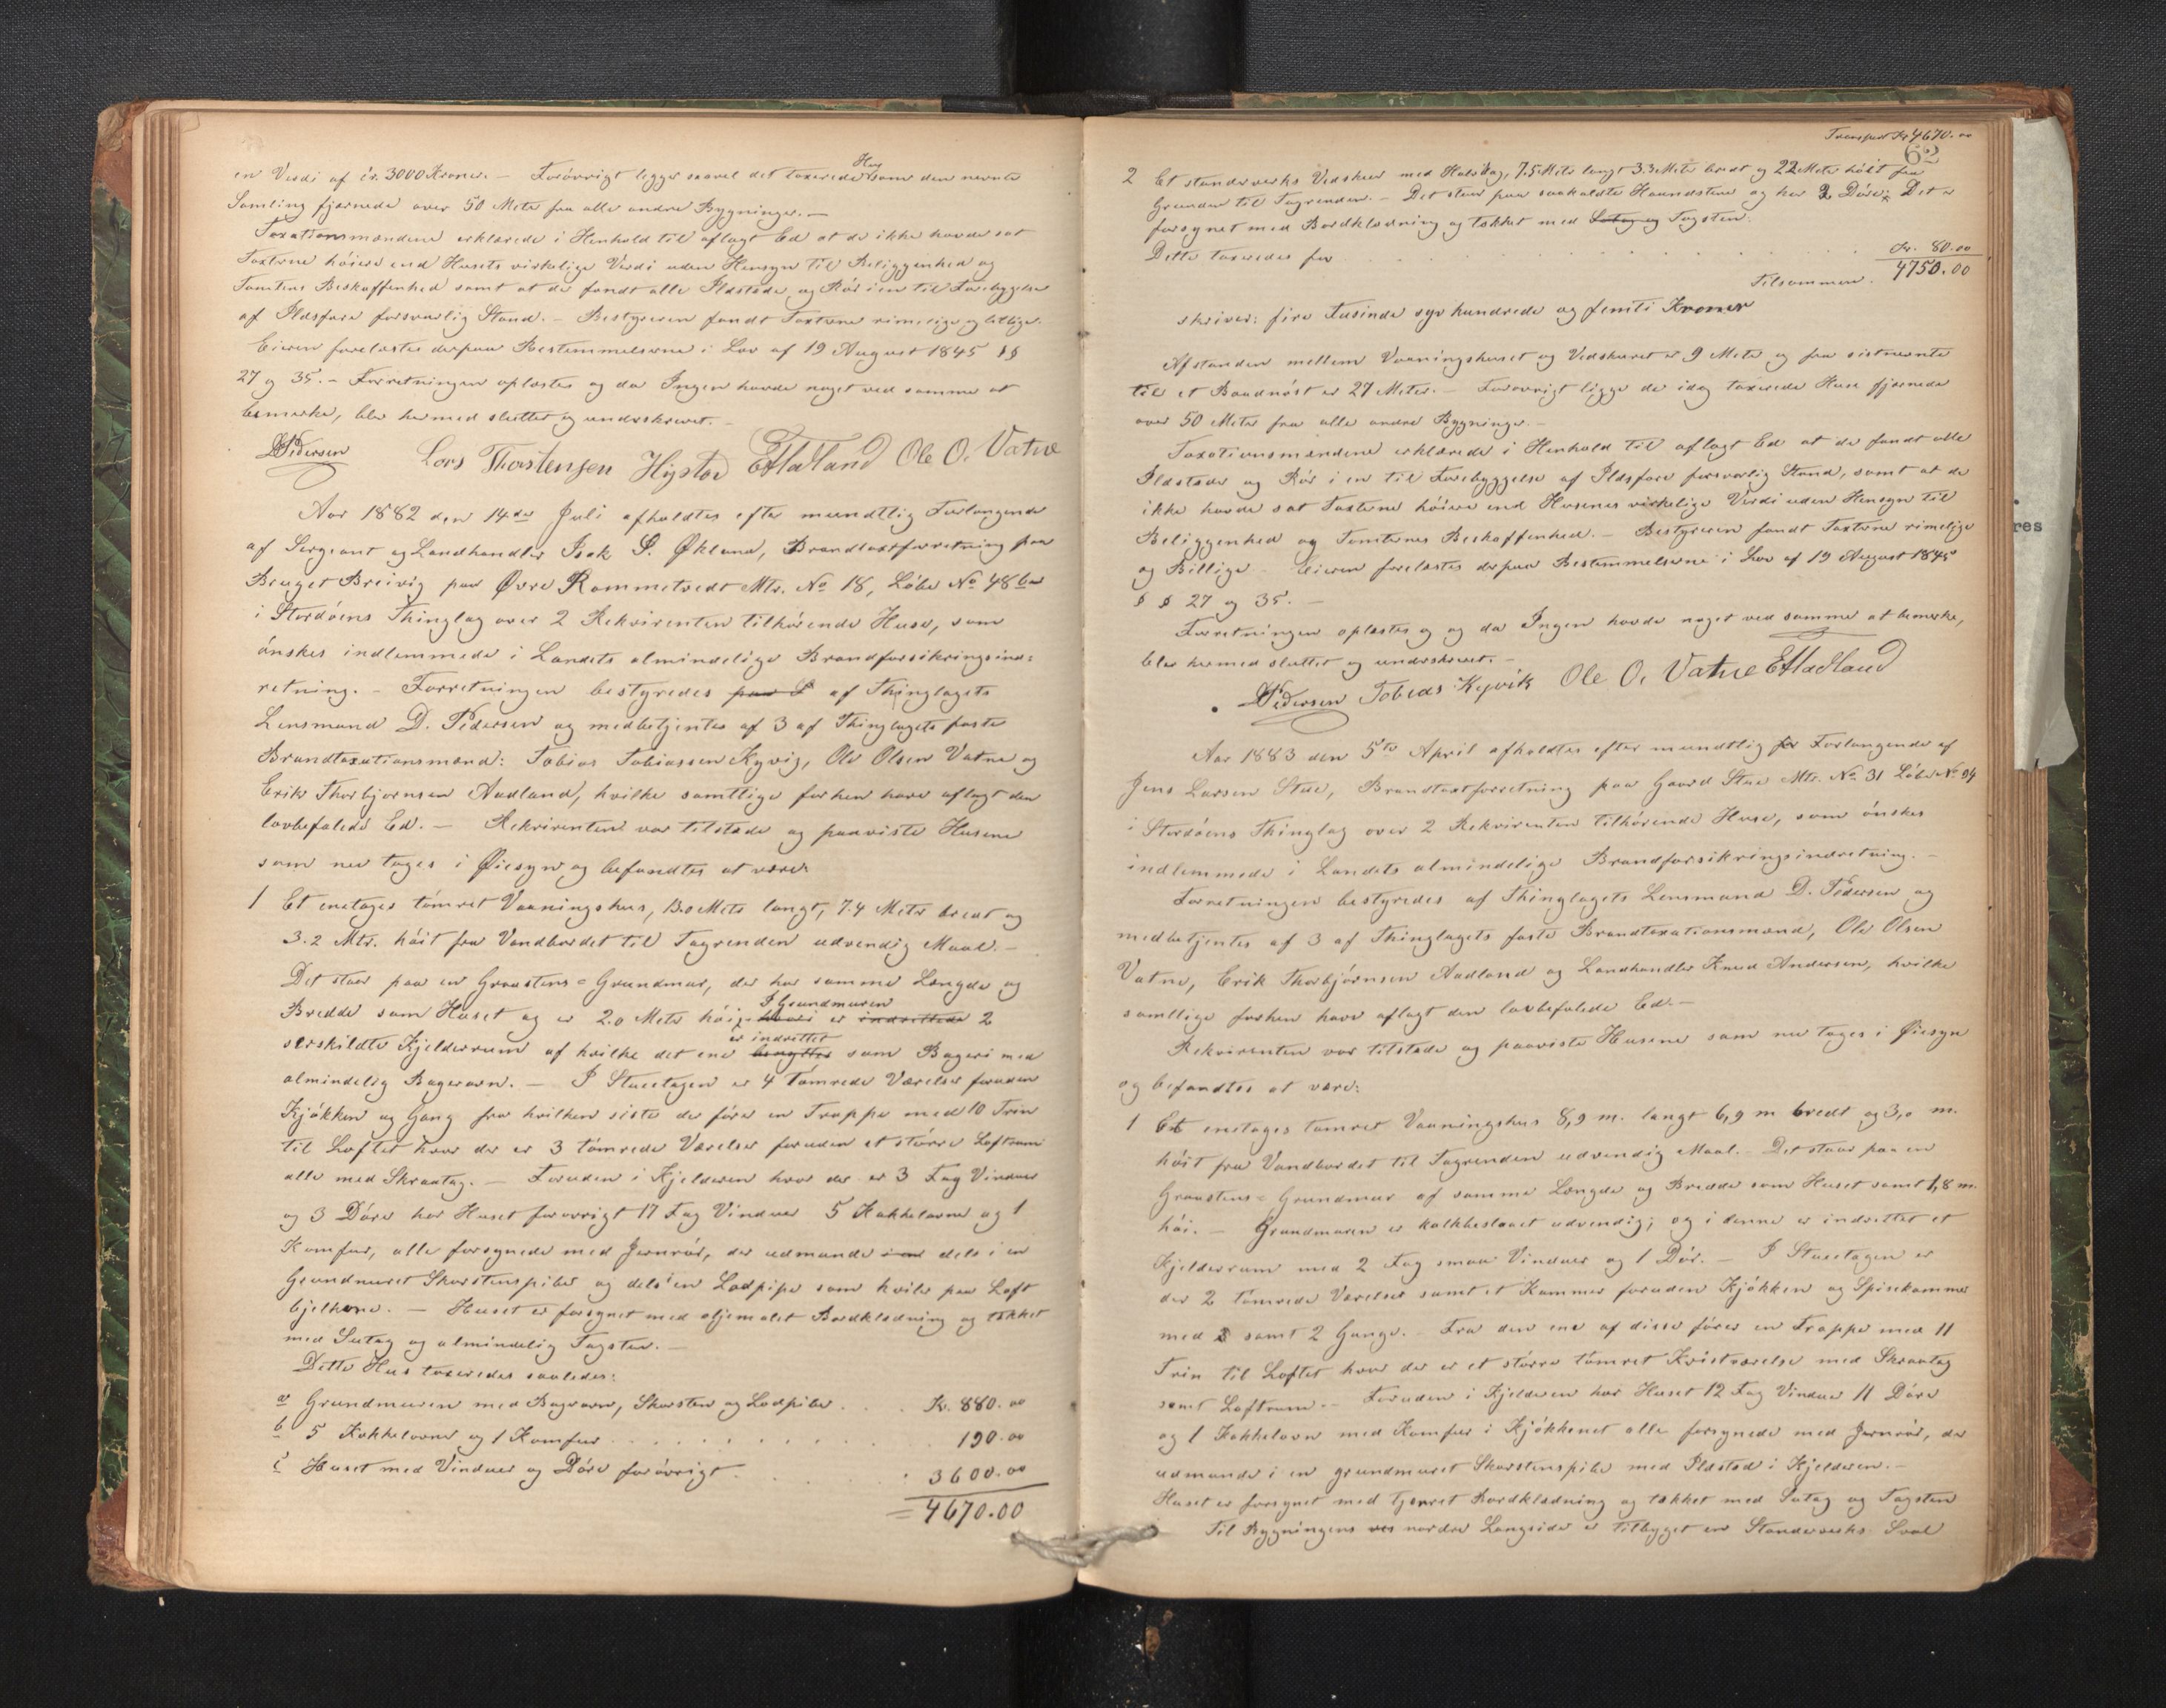 en Verdi af ir. 3000 Kroner. — Forövrigt ligger saavel det taxerede Hus som den nevnte
Samling fjærnede over 50 Meter fra alle andre Bygninger. —
Taxationsmændene erklærede i Henhold til aflagt Ed at de ikke havde sat
Taxterne höiere end Husets virkelige Verdi uden Hensyn til Beliggenhed og
Tomtens Beskaffenhed samt at de fandt alle Ildsteder og Rör i en til Forebyggelse
af Ildsfare forsvarlig Stand. — Bestyreren fandt Taxterne rimelige og billige.
Eieren forelæstes derpaa Bestemmelserne i Lov af 19 August 1845 §§
27 og 35. — Forretningen oplæstes og da Ingen havde noget ved samme at
bemærke, blev hermed sluttet og underskrevet. —
DPedersen Lars Thorstensen Hystad EAadland Ole O. Vatne
Aar 1882 den 14de Juli afholdtes efter mundtlig Forlangende
af Sergeant og Landhandler Isak S. Økland, Brandtaxtforretning paa
Bruget Breivig paa Øvre Rommetvedt Mtr. No 18, Löbe No 48 ba
i Stordöens Thinglag over 2 Rekvirenten tilhörende Huse, som
önskes indlemmede i Landets almindelige Brandforsikringsind=
retning. — Forretningen bestyredes paa S af Thinglagets
Lensmand D. Pedersen og medbetjentes af 3 af Thinglagets faste
Brandtaxationsmænd: Tobias Tobiassen Kyvig, Ole Olsen Vatne og
Erik Thorbjörnsen Aadland, hvilke samtlige forhen have aflagt den
lovbefalede Ed. — Rekvirenten var tilstede og paaviste Husene
som nu toges i Øiesyn og befandtes at være:
1 Et enetages tömret Vaaningshus, 13.0 Meter langt, 7.4 Meter bredt og
3.2 Mtr. höit fra Vandbordet til Tagrenden udvendig Maal. —
Det staar paa en Graastens=Grundmur, der har samme Længde og
Bredde som Huset og er 2.0 Meter höi; hvori I Grundmuren er indrettede 2
særskildte Kjelderrum af hvilke det ene benyttes er indrettet som Bageri med
almindelig Bagerovn. — I Stueetagen er 4 tömrede Værelser foruden
Kjökken og Gang fra hvilken siste der förer en Trappe med 10 Trin
til Loftet hvor der er 3 tömrede Værelser foruden et större Loftrum
alle med Skraatag. — Foruden i Kjelderen hvor der er 3 Fag Vinduer
og 3 Döre har Huset forövrigt 17 Fag Vinduer 5 Kakkelovne og 1
Komfur, alle forsynede med Jernrör, der udmunde i en dels i en
Grundmuret Skorstenspibe og dels i en Lodpipe som hviler paa Loft
bjelkerne. — Huset er forsynet med oljemalet Bordklædning og tækket
med Sutag og almindelig Tagsten. —
Dette Hus taxeredes saaledes:
a Grundmuren med Bagerovn, Skorsten og Lodpibe . . . Kr. 880.00
b 5 Kakkelovne og 1 Komfur . . . . . . . . 190.00
c Huset med Vinduer og Döre forövrigt . . . . 3600.00
= 4670.00
Transport Kr 4670.00
62
2 Et standerverks Vedskur med Halvtag, 7.5 Meter langt 3.3 Meter bredt og 2.2 Meter höit fra
Grunden til Tagrenden. — Det staar paa saakaldte Haandstene og har 2 Döre; Det er
forsynet med Bordklædning og tækket med Sutag og Tagsten.
Dette taxeredes for . . . . . . . . Kr. 80.00
Tilsammen. 4750.00
skriver: fire Tusinde syv hundrede og femti Kroner
Afstanden mellem Vaaningshuset og Vedskuret er 9 Meter og fra sistnevnte
til et Baadnöst er 27 Meter. — Forövrigt ligge de idag taxerede Huse fjærnede
over 50 Meter fra alle andre Bygninger. —
Taxationsmændene erklærede i Henhold til aflagt Ed at de fandt alle
Ildsteder og Rör i en til Forebyggelse af Ildsfare forsvarlig Stand, samt at de
ikke havde sat Taxterne höiere end Husenes virkelige Verdi uden Hensyn til
Beliggenhed og Tomternes Beskaffenhed. — Bestyreren fandt Taxterne rimelige
og Billige — Eieren forelæstes derpaa Bestemmelserne i Lov af 19 August 1845
§ § 27 og 35. —
Forretningen oplæstes og og da Ingen havde noget ved samme at bemærke,
blev hermed sluttet og underskrevet. —
DPedersen Tobias Kyvik Ole O. Vatne EAadland
Aar 1883 den 5te April afholdtes efter mundtlig for Forlangende af
Jens Larsen Stue, Brandtaxtforretning paa Gaard Stue Mtr. No. 31 Löbe No. 94
i Stordöens Thinglag over 2 Rekvirenten tilhörende Huse, som önskes
indlemmede i Landets almindelige Brandforsikringsindretning. —
Forretningen bestyredes af Thinglagets Lensmand D. Pedersen og
medbetjentes af 3 af Thinglagets faste Brandtaxationsmænd, Ole Olsen
Vatne, Erik Thorbjörnsen Aadland og Landhandler Knud Andersen, hvilke
samtlige forhen have aflagt den lovbefalede Ed. —
Rekvirenten var tilstede og paaviste Husene som nu toges i Øiesyn
og befandtes at være:
1 Et enetages tömret Vaaningshus 8,9 m. langt 6,9 m bredt og 3,0 m.
höit fra Vandbordet til Tagrenden udvendig Maal. — Det staar paa en
Graastens=Grundmur af samme Længde og Bredde som Huset samt 1,8 m.
höi. — Grundmuren er kalkbeslaaet udvendig; og i denne er indrettet et
Kjelderrum med 2 Fag smaa Vinduer og 1 Dör. — I Stueetagen er
der 2 tömrede Værelser samt et Kammer foruden Kjökken og Spisekammer
med 2 samt 2 Gange. — Fra den ene af disse förer en Trappe med 11
Trin til Loftet hvor der er et större tömret Kvistværelse med Skraatag
samt Loftrum. — Foruden i Kjelderen har Huset 12 Fag Vinduer 11 Döre
og 1 Kakkelovn med Komfur i Kjökkenet alle forsynede med Jernrör, der
udmunde i en grundmuret Skorstenspibe med Ildsted i Kjelderen. —
Huset er forsynet med tjærret Bordklædning og tækket med Sutag og Tagsten
Til Bygningens ves nordre Langside er tilbygget en Standerverks Sval
res